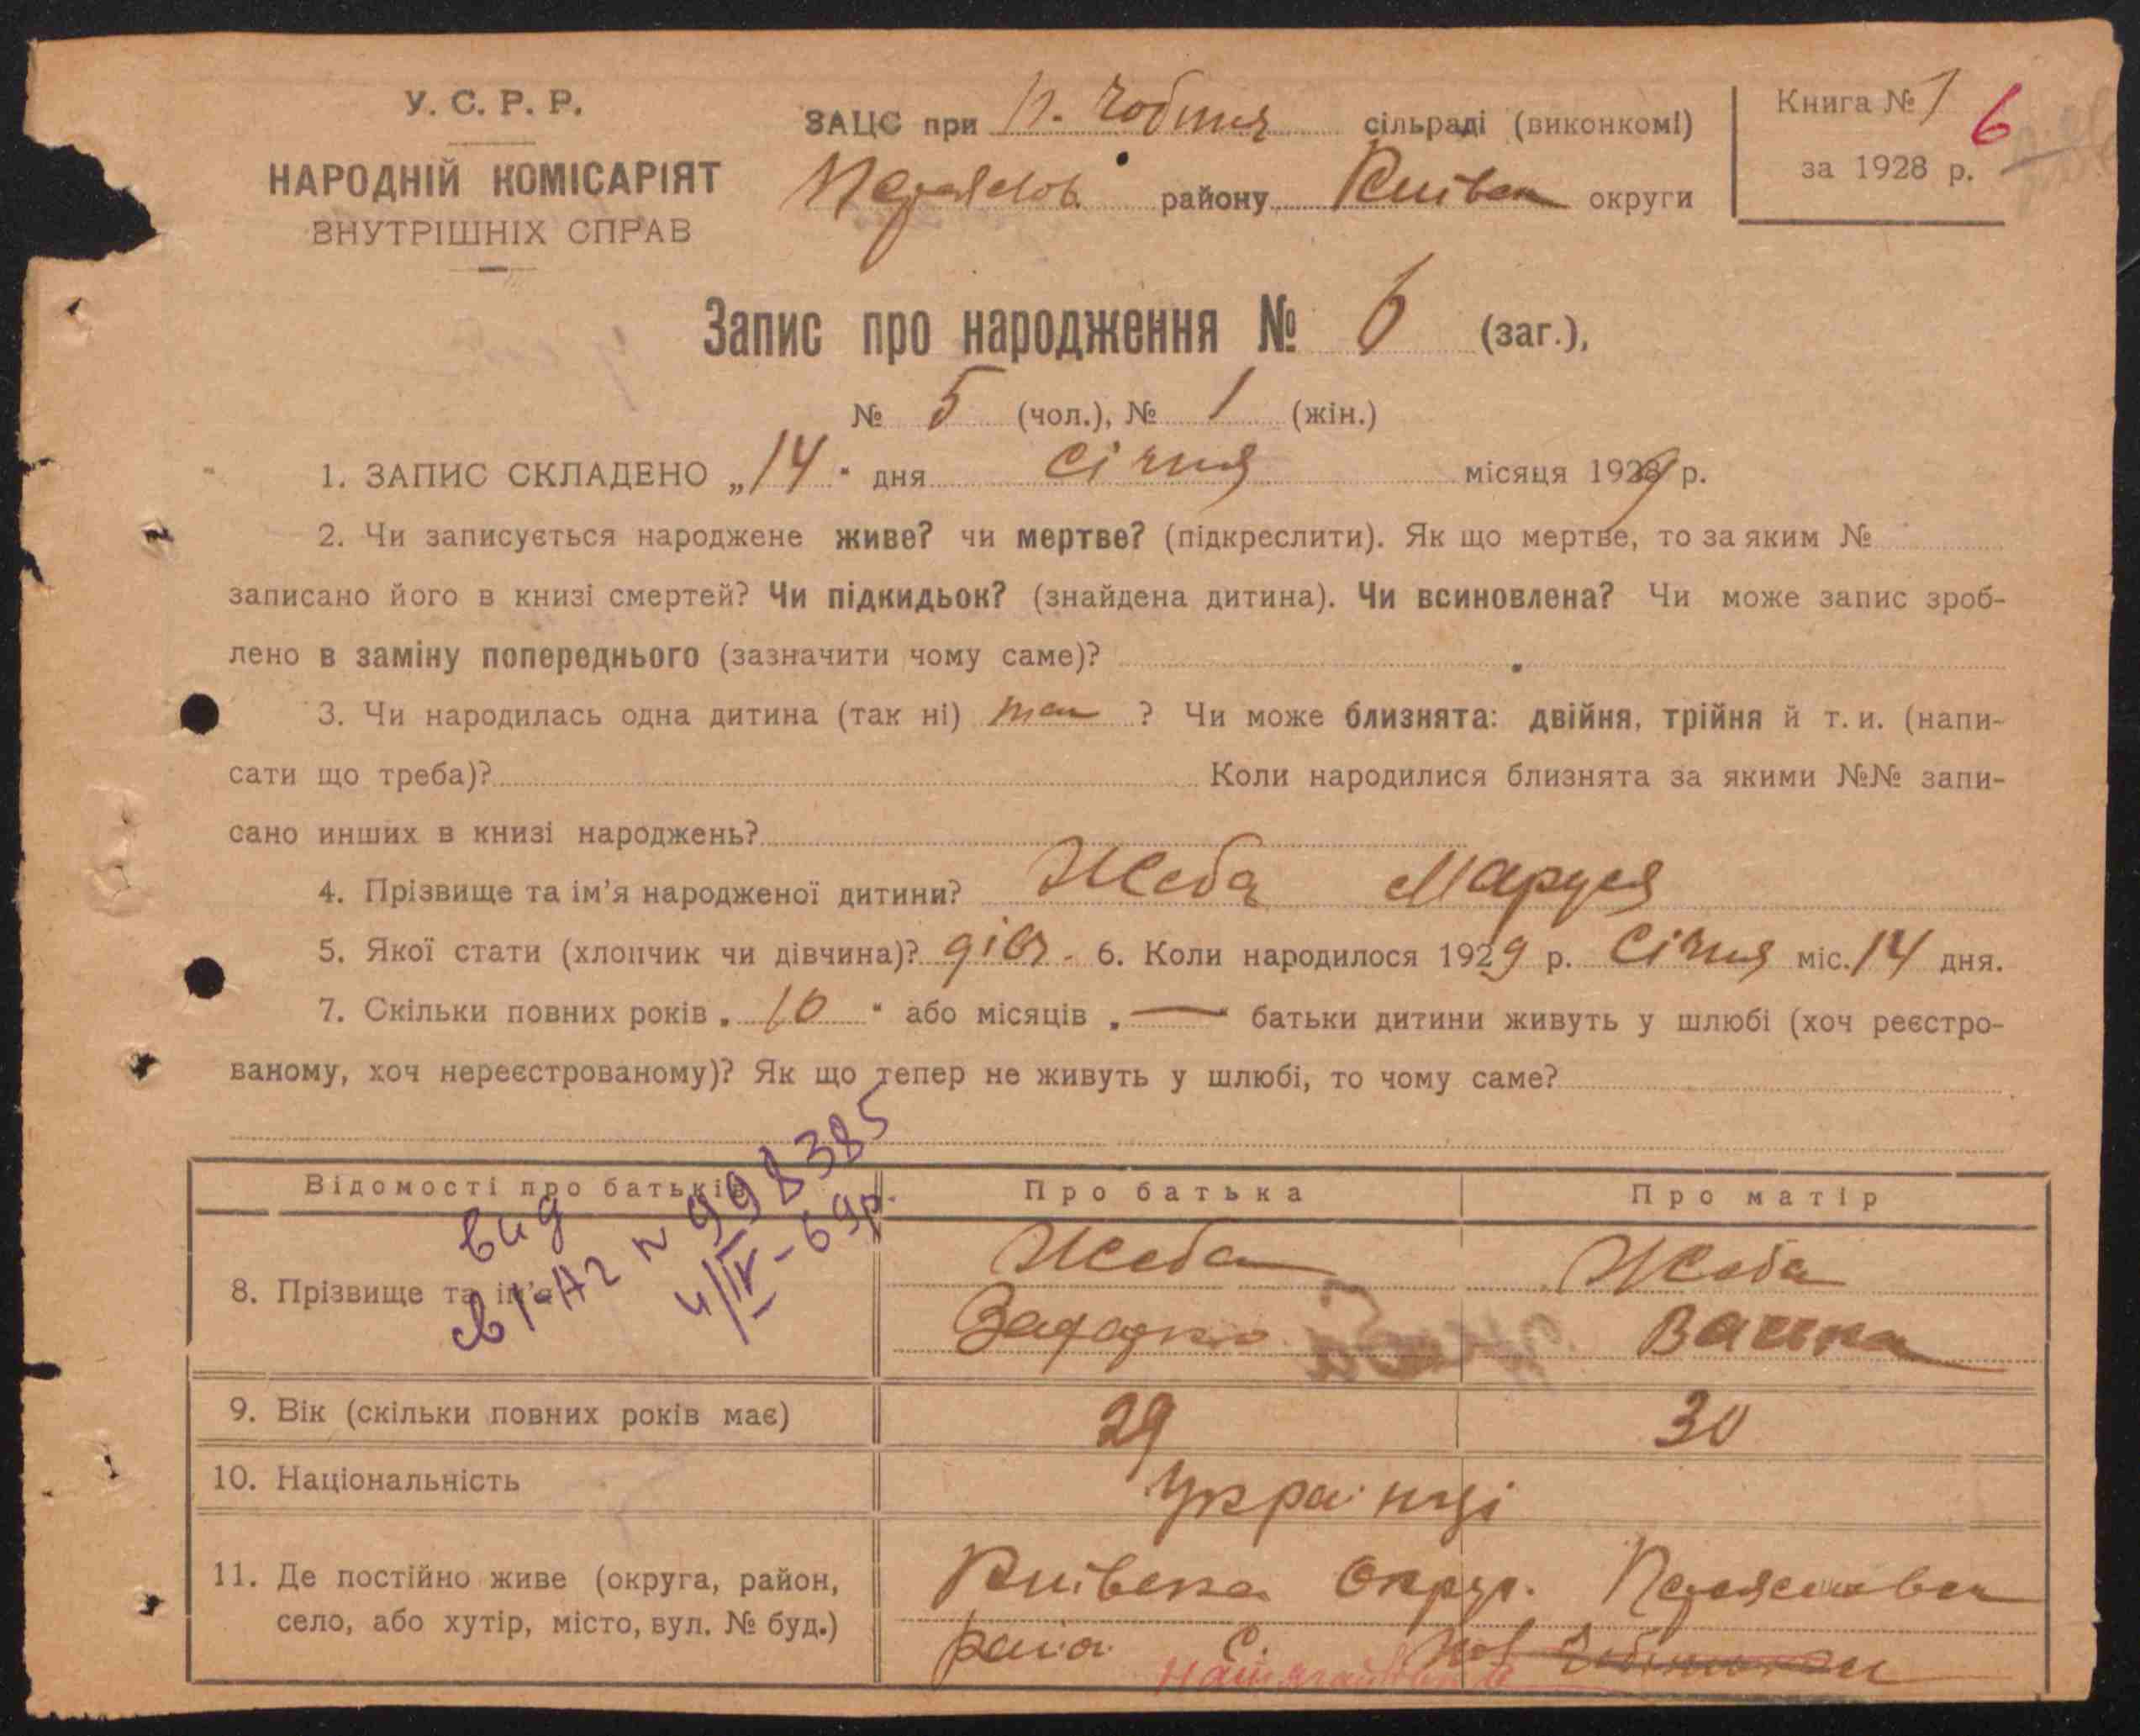 У. С. Р. Р.
НАРОДНІЙ КОМІСАРІЯТ
ВНУТРІШНІХ СПРАВ
ЗАЦС при сільраді (виконкомі)
району Київськ округи
Книга № 1 6
за 1928 р.
Запис про народження № 6 (заг.),
№ 5 (чол.), № 1 (жін.)
1. ЗАПИС СКЛАДЕНО „14" дня січня місяця 1929 р.
2. Чи записується народжене живе? чи мертве? (підкреслити). Як що мертве, то за яким №
записано його в книзі смертей? Чи підкидьок? (знайдена дитина). Чи всиновлена? Чи може запис зроб-
лено в заміну попереднього (зазначити чому саме)?
3. Чи народилась одна дитина (так ні) так ? Чи може близнята: двійня, трійня й т. и. (напи-
сати що треба)? Коли народилися близнята за якими №№ запи-
сано инших в книзі народжень?
4. Прізвище та ім'я народженої дитини? Жеба Маруся
5. Якої стати (хлопчик чи дівчина)? дівч. 6. Коли народилося 1929 р. Січня міс. 14 дня.
7. Скільки повних років „10" або місяців „—" батьки дитини живуть у шлюбі (хоч реєстро-
ваному, хоч нереєстрованому)? Як що тепер не живуть у шлюбі, то чому саме?
Відомості про батьків Про батька Про матір
вид
№ 998385
4/IV-69р.
8. Прізвище та ім'я Жеба Жеба
9. Вік (скільки повних років має) 29 30
10. Національність Українці
11. Де постійно живе (округа, район, Київська Округ.
село, або хутір, місто, вул. № буд.) С.